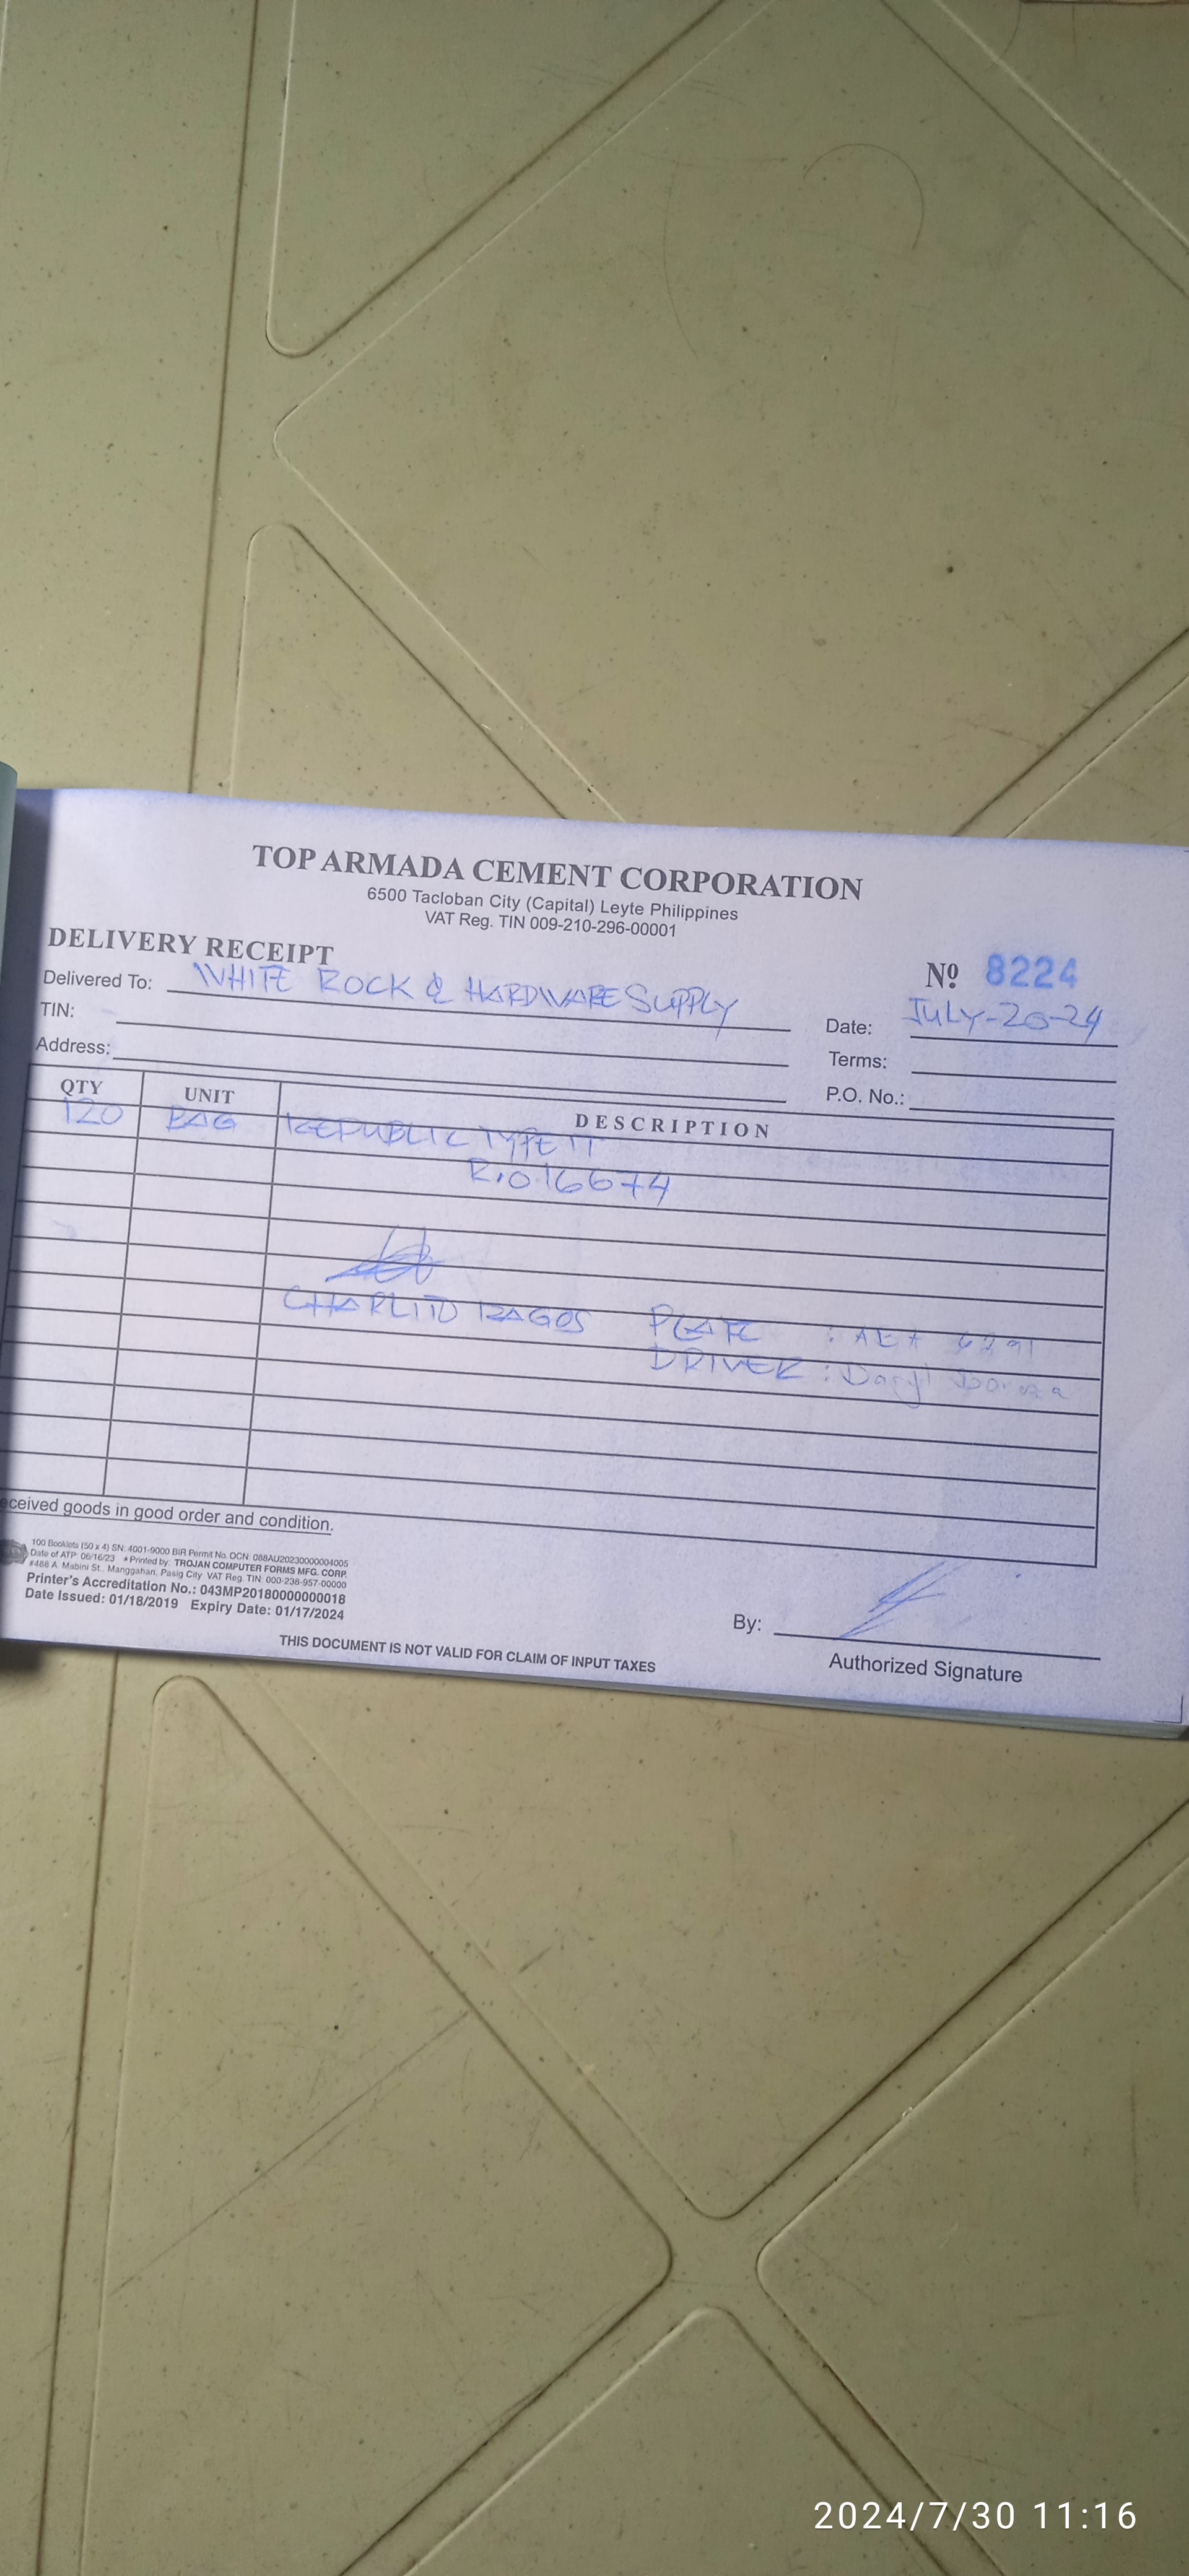 TOP ARMADA CEMENT CORPORATION
6500 Tacloban City (Capital) Leyte Philippines
VAT Reg. TIN 009-210-296-00001
DELIVERY RECEIPT
Nº 8224
Delivered To: WHITE ROCK & HARDWARE SUPPLY
Date: JULY-20-24
TIN:
Terms:
Address:
P.O. No.:
QTY UNIT DESCRIPTION
120 BAG REPUBLIC TYPE 1T
R.O.16674
CHARLITO RAGOS PLATE :
DRIVER : Daryl
eceived goods in good order and condition.
100 Booklets (50 x 4) SN: 4001-9000 BIR Permit No. OCN: 088AU20230000004005
Date of ATP: 06/16/23 *Printed by: TROJAN COMPUTER FORMS MFG. CORP.
#488 A. Mabini St., Manggahan, Pasig City VAT Reg. TIN: 000-238-957-00000
Printer's Accreditation No.: 043MP20180000000018
Date Issued: 01/18/2019 Expiry Date: 01/17/2024
By:
Authorized Signature
THIS DOCUMENT IS NOT VALID FOR CLAIM OF INPUT TAXES
2024/7/30 11:16